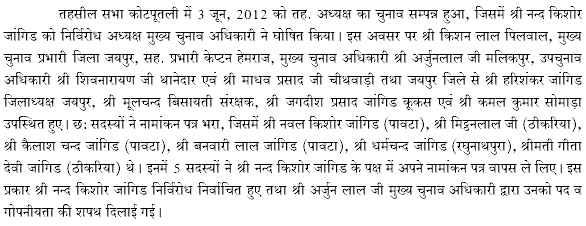 तहसील सभा कोटपूतली में 3 जून, 2012 को तह. अध्यक्ष का चुनाव सम्पन्न हुआ, जिसमें श्री नन्द किशोर
जांगिड को निर्विरोध अध्यक्ष मुख्य चुनाव अधिकारी ने घोषित किया। इस अवसर पर श्री किशन लाल पिलवाल, मुख्य
चुनाव प्रभारी जिला जयपुर, सह. प्रभारी केप्टन हेमराज, मुख्य चुनाव अधिकारी श्री अर्जुनलाल जी मलिकपुर, उपचुनाव
अधिकारी श्री शिवनारायण जी थानेदार एवं श्री माधव प्रसाद जी चीथवाड़ी तथा जयपुर जिले से श्री हरिशंकर जांगिड
जिलाध्यक्ष जयपुर, श्री मूलचन्द बिसायती संरक्षक, श्री जगदीश प्रसाद जांगिड कूकस एवं श्री कमल कुमार सोमाड़ा
उपस्थित हुए। छः सदस्यों ने नामांकन पत्र भरा, जिसमें श्री नवल किशोर जांगिड (पावटा), श्री मिट्ठनलाल जी (ठीकरिया),
श्री कैलाश चन्द जांगिड (पावटा), श्री बनवारी लाल जांगिड (पावटा), श्री धर्मचन्द जांगिड (रघुनाथपुरा), श्रीमती गीता
देवी जांगिड (ठीकरिया) थे। इनमें 5 सदस्यों ने श्री नन्द किशोर जांगिड के पक्ष में अपने नामांकन पत्र वापस ले लिए। इस
प्रकार श्री नन्द किशोर जांगिड निर्विरोध निर्वाचित हुए तथा श्री अर्जुन लाल जी मुख्य चुनाव अधिकारी द्वारा उनको पद व
गोपनीयता की शपथ दिलाई गई।